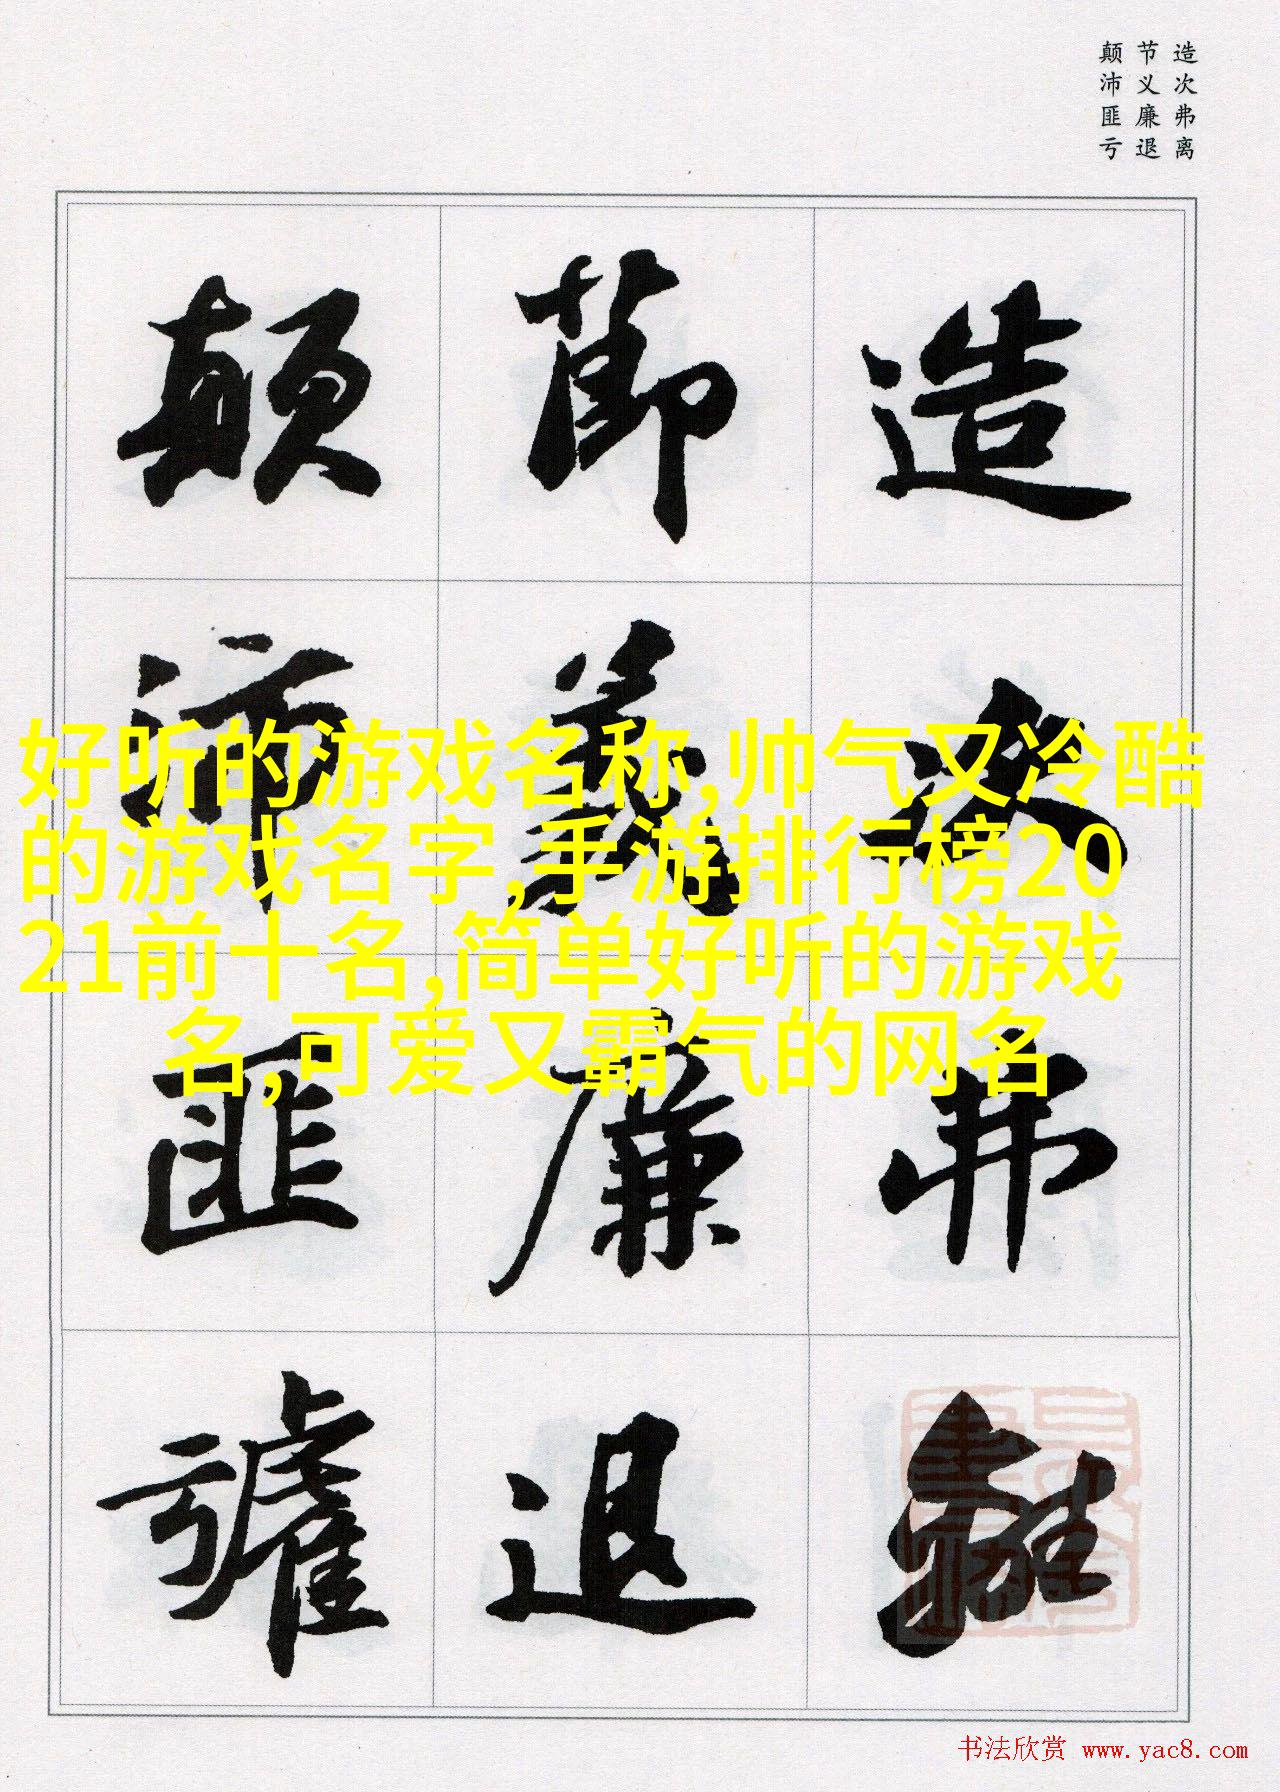 造次弗离
节义廉退
颠沛匪亏
造次弗離
節義廉退
顛沛匪虧
好听的游戏名称,帅气又冷酷
的游戏名字,手游排行榜20
21前十名,简单好听的游戏
名,可爱又霸气的网名
书法欣赏 www.yac8.com